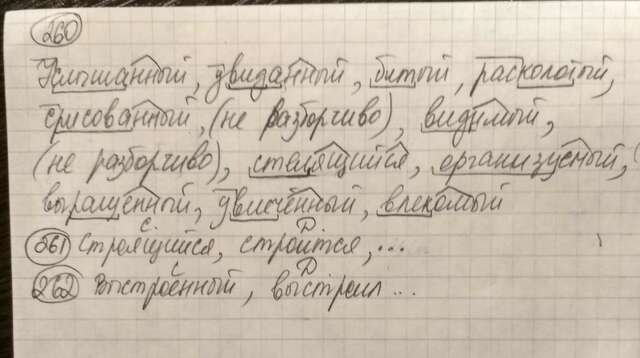 260
Услышанный, увиданный, битый, расколотый,
срисованный, (не разборчиво), видимый,
(не разборчиво), стелящийся, организуемый,
выращенный, увлечённый, влекомый
261 Строящийся, строится, ...
262 Выстроенный, выстроил ...